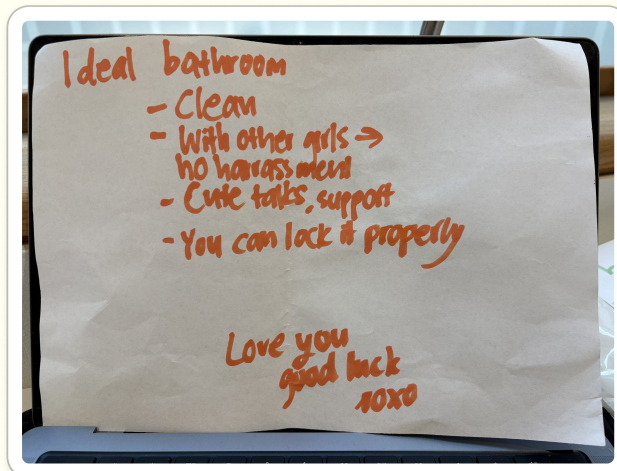 Ideal bathroom
- Clean
- With other girls →
no harrassment
- Cute talks, support
- You can lock it properly
Love you
good luck
xoxo